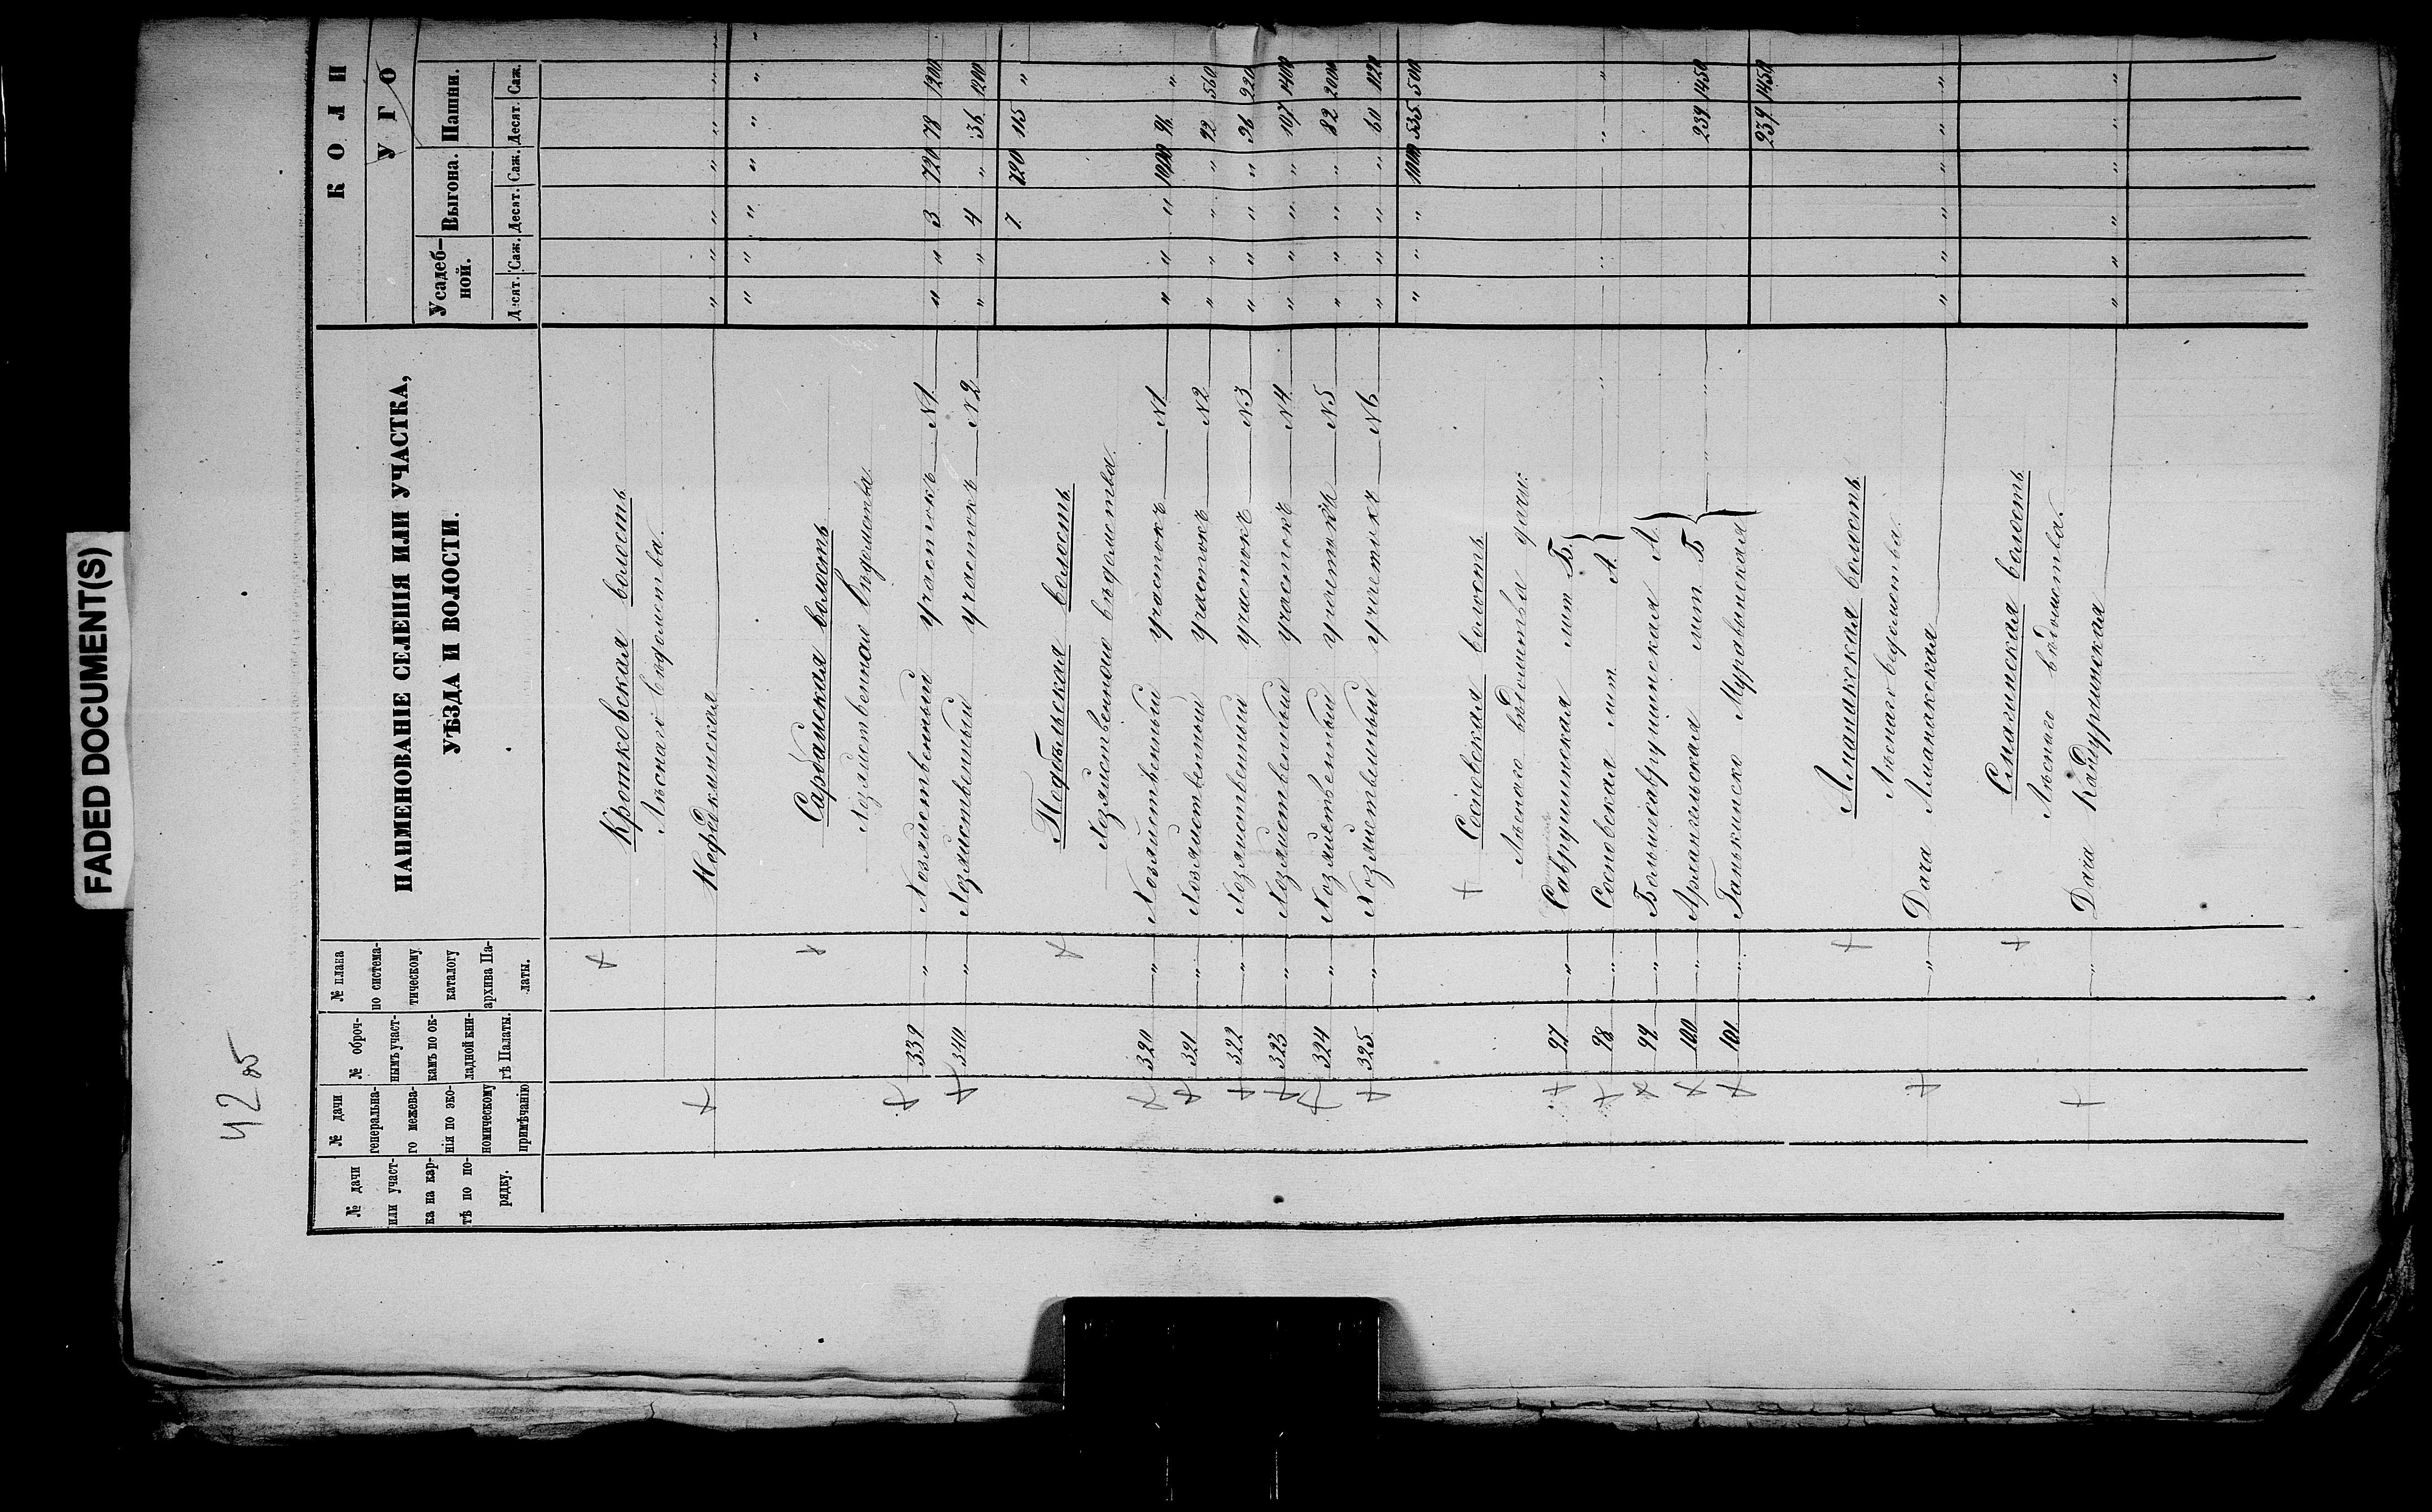 FADED DOCUMENT(S)
42 об
№ дачи или участка на картѣ по порядку.
№ дачи генеральнаго межеванія по экономическому примѣчанію
№ оброчнымъ участкамъ по окладной книгѣ Палаты.
№ плана по систематическому каталогу архива Палаты.
НАИМЕНОВАНІЕ СЕЛЕНІЯ ИЛИ УЧАСТКА,
УѢЗДА И ВОЛОСТИ.
К О Л И
У Г О
Усадебной. Выгона. Пашни.
Десят. Саж. Десят. Саж. Десят. Саж.
Кротковская волость
Лѣснаго вѣдомства.
" " " " " "
" " " " " "
Сарбайская волость
Хозяйственнаго вѣдомства
339 " Хозяйственный участокъ №1 " " 3 720 78 1200
340 " Хозяйственный участокъ №2 " " 4 " 36 1200
7 720 115 "
Подбѣльская волость
Хозяйственнаго вѣдомства.
320 " Хозяйственный участокъ №1 " " " 1000 96 "
321 " Хозяйственный участокъ №2 " " " " 92 560
322 " Хозяйственный участокъ №3 " " " " 96 220
323 " Хозяйственный участокъ №4 " " " " 107 1400
324 " Хозяйственный участокъ №5 " " " " 82 200
325 " Хозяйственный участокъ №6 " " " " 60 1120
" " " 1000 535 500
Сосновская волость
Лѣснаго вѣдомства дачи:
97 " Саврушинская лит Б.
98 " Сосновская лит А. "
99 " Большесаврушинская А.
100 " Архангельская лит Б " 239 1450
101 " Ганькинско Муравьинская
239 1450
Аманакская волость
Лѣснаго вѣдомства.
" Дача Аманакская " " " " " "
Смагинская волость
Лѣснаго вѣдомства.
" Дача " " " " " "